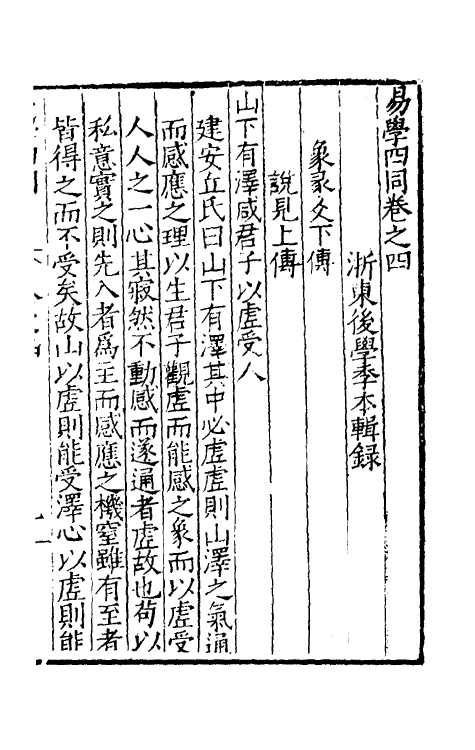 易學四同卷之四
浙東後學季本輯録
象彖爻下傳
說見上傳
山下有澤咸君子以虛受人
建安丘氏曰山下有澤其中必虛虛則山澤之氣通
而感應之理以生君子觀虛而能感之象而以虛受
人人之一心其寂然不動感而遂通者虛故也苟以
私意實之則先入者爲主而感應之機窒雖有至者
皆得之而不受矣故山以虛則能受澤心以虛則能